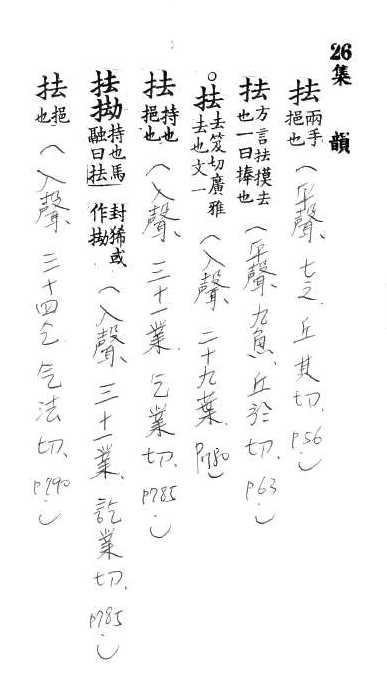 26集韻
抾兩手挹也(平聲、七之、丘其切、P56)
抾方言抾摸去也一曰捧也(平聲、九魚、丘於切、P63)
○抾去笈切廣雅去也文一(入聲、二十九葉、P780)
抾持也挹也(入聲、三十一業、乞業切、P785)
抾㧁持也馬融曰抾封狶或作㧁(入聲、三十一業、訖業切、P785)
抾挹也(入聲、三十四乏、气法切、P790)